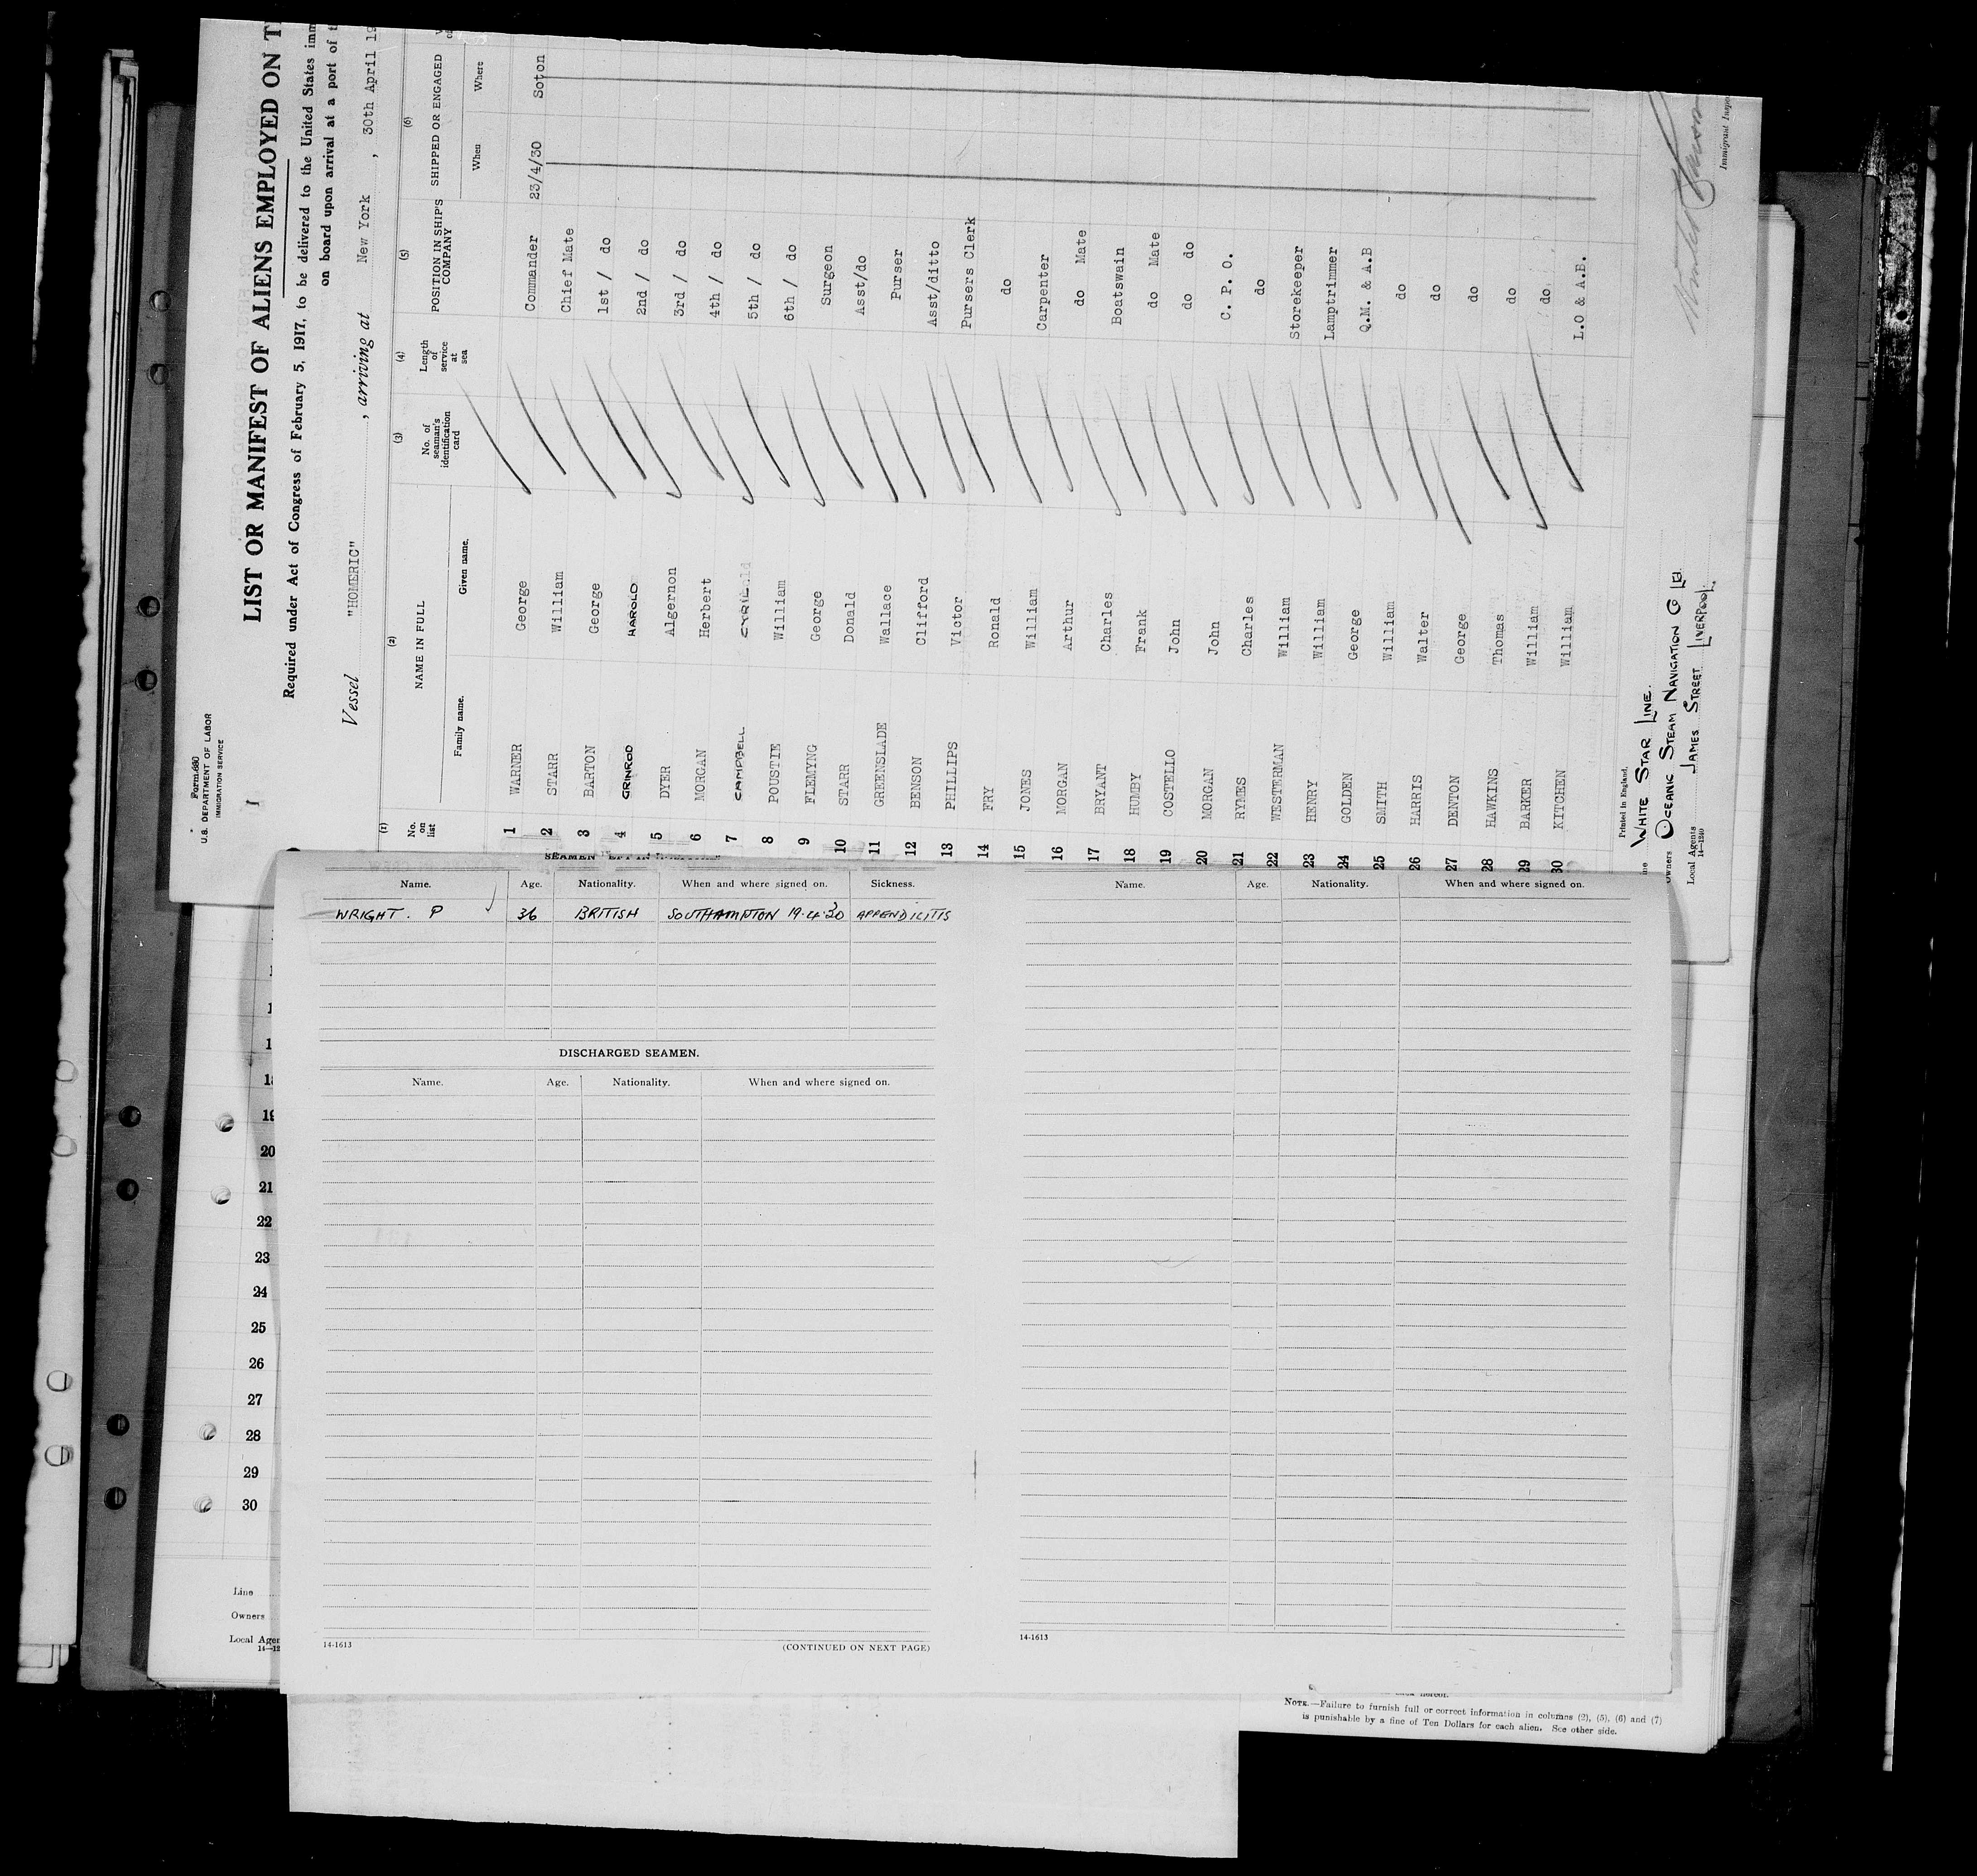 Form 680
U.S. DEPARTMENT OF LABOR
IMMIGRATION SERVICE
LIST OR MANIFEST OF ALIENS EMPLOYED ON T
Required under Act of Congress of February 5, 1917, to be delivered to the United States imm
on board upon arrival at a port of t
Vessel "HOMERIC", arriving at New York, 30th April 19
(1) (2) (3) (4) (5) (6)
No. on list NAME IN FULL No. of seaman's identification card Length of service at sea POSITION IN SHIP'S COMPANY SHIPPED OR ENGAGED
Family name. Given name. When Where
1 WARNER George Commander 23/4/30 Soton
2 STARR William Chief Mate
3 BARTON George 1st / do
4 GRINROD HAROLD 2nd / do
5 DYER Algernon 3rd / do
6 MORGAN Herbert 4th / do
7 CAMPBELL CYRIL 5th / do
8 POUSTIE William 6th / do
9 FLEMYNG George Surgeon
10 STARR Donald Asst/do
11 GREENSLADE Wallace Purser
12 BENSON Clifford Asst/ditto
13 PHILLIPS Victor Pursers Clerk
14 FRY Ronald do
15 JONES William Carpenter
16 MORGAN Arthur do Mate
17 BRYANT Charles Boatswain
18 HUMBY Frank do Mate
19 COSTELLO John do do
20 MORGAN John C. P. O.
21 RYMES Charles do
22 WESTERMAN William Storekeeper
23 HENRY William Lamptrimmer
24 GOLDEN George Q.M. & A.B
25 SMITH William do
26 HARRIS Walter do
27 DENTON George do
28 HAWKINS Thomas do
29 BARKER William do
30 KITCHEN William L.O & A.B.
Printed in England.
ine WHITE STAR LINE.
Owners OCEANIC STEAM NAVIGATION Co Ltd
Local Agents JAMES STREET LIVERPOOL.
14-1240
Immigrant Inspe
Name. Age. Nationality. When and where signed on. Sickness.
WRIGHT. P 36 BRITISH SOUTHAMPTON 19.4.30 APPENDICITIS
DISCHARGED SEAMEN.
Name. Age. Nationality. When and where signed on.
14-1613 (CONTINUED ON NEXT PAGE)
Name. Age. Nationality. When and where signed on.
14-1613
19
20
21
22
23
24
25
26
27
28
29
30
Line
Owners
Local Agen
14-12
NOTE.—Failure to furnish full or correct information in columns (2), (5), (6) and (7)
is punishable by a fine of Ten Dollars for each alien. See other side.